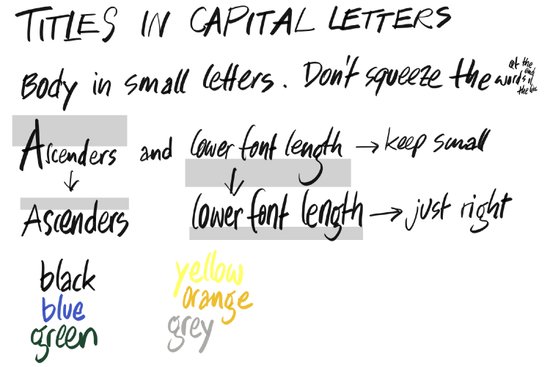 TITLES IN CAPITAL LETTERS
Body in small letters. Don't squeeze the words at the end of the line
Ascenders and lower font length → keep small
↓ ↓
Ascenders lower font length → just right
black yellow
blue orange
green grey